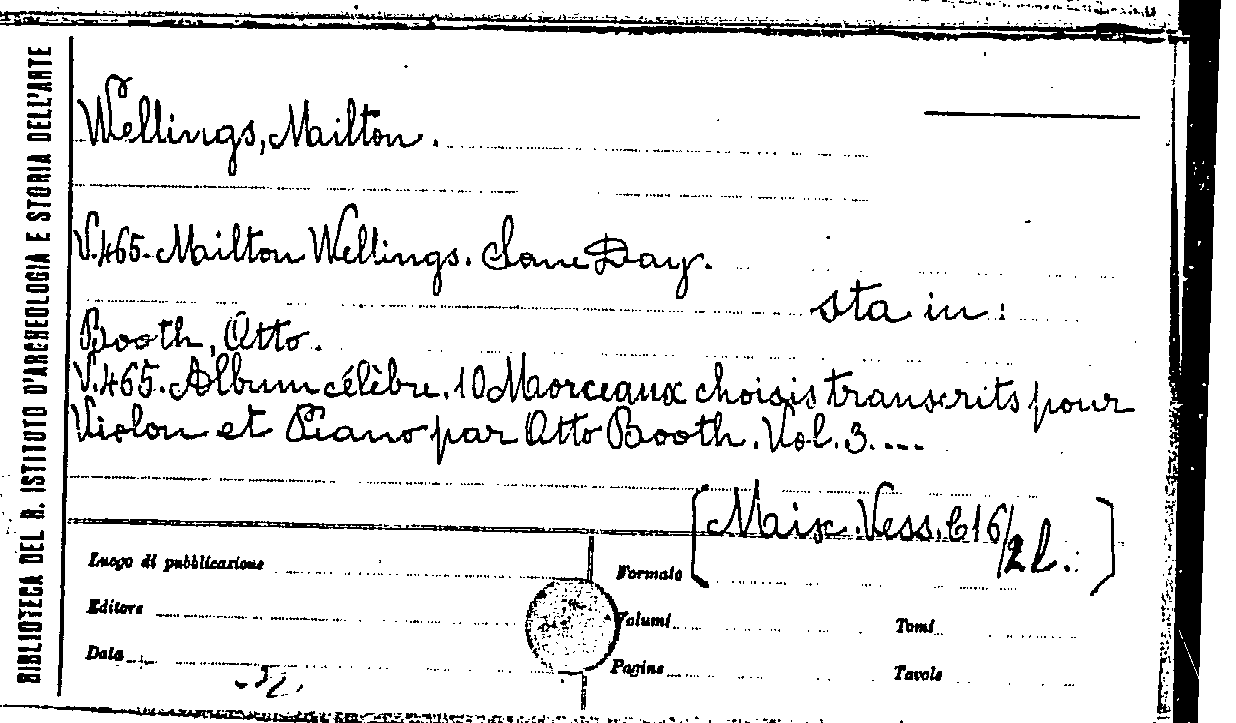 BIBLIOTECA DEL R. ISTITUTO D'ARCHEOLOGIA E STORIA DELL'ARTE
Wellings, Mailton.
V.465. Mailton Wellings. Some Day.
sta in:
Booth, Otto.
V.465. Album célèbre. 10 Morceaux choisis transcrits pour
Violon et Piano par Otto Booth. Vol. 3....
[Misc. Vess. C 16/2 l.]
Luogo di pubblicazione
Formato
Editore
Volumi
Tomi
Data
Pagine
Tavole